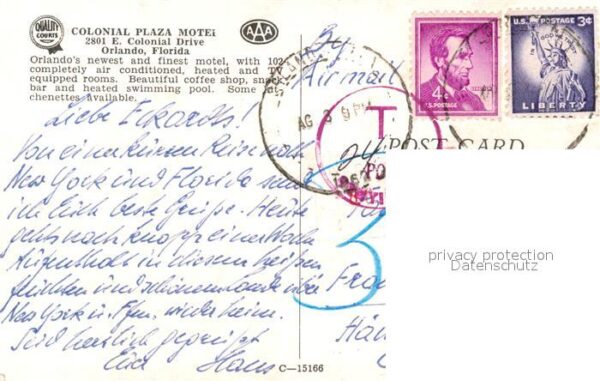 QUALITY
COURTS
COLONIAL PLAZA MOTEL
2801 E. Colonial Drive
Orlando, Florida
AAA
Orlando's newest and finest motel, with 102
completely air conditioned, heated and TV
equipped rooms. Beautiful coffee shop, snack
bar and heated swimming pool. Some kit-
chenettes available.
By
Airmail
4¢
U.S. POSTAGE
U.S. POSTAGE 3¢
IN GOD WE TRUST
LIBERTY
AG 3 6 PM
T
POST CARD
Liebe Eckardts!
Von einer kurzen Reise nach
New York und Florida sende
ich Euch beste Grüße. Heute
gehts nach knapp einer Woche
Aufenthalt in diesem heißen
feuchten und schönen Lande über
New York n. Ffm. wieder heim.
Seid herzlich gegrüßt
Euer Hans
3
Fran
C-15166
privacy protection
Datenschutz